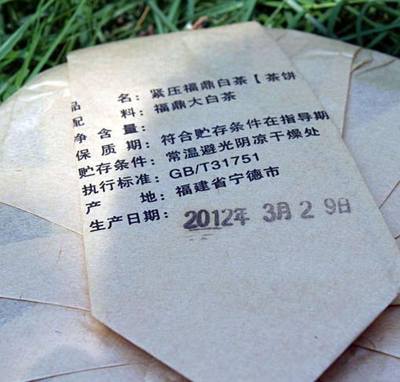 品 名：紧压福鼎白茶【茶饼
配 料：福鼎大白茶
净 含 量：
保 质 期：符合贮存条件在指导期
贮存条件：常温避光阴凉干燥处
执行标准：GB/T31751
产 地：福建省宁德市
生产日期：2012年 3月 2 9日